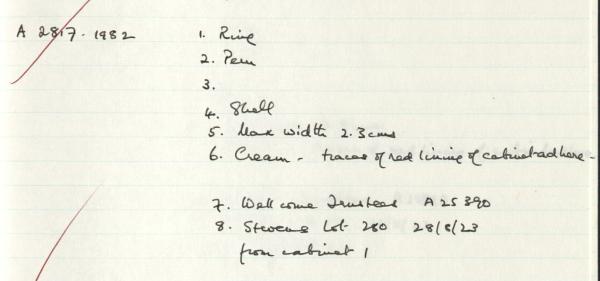 A 2817.1982 1. Ring
2. Peru
3.
4. Shell
5. Max width 2.3 cms
6. Cream - traces of red lining of cabinet adhere -
7. Wellcome Trustees A 25390
8. Stevens Lot 280 28/8/23
from cabinet 1